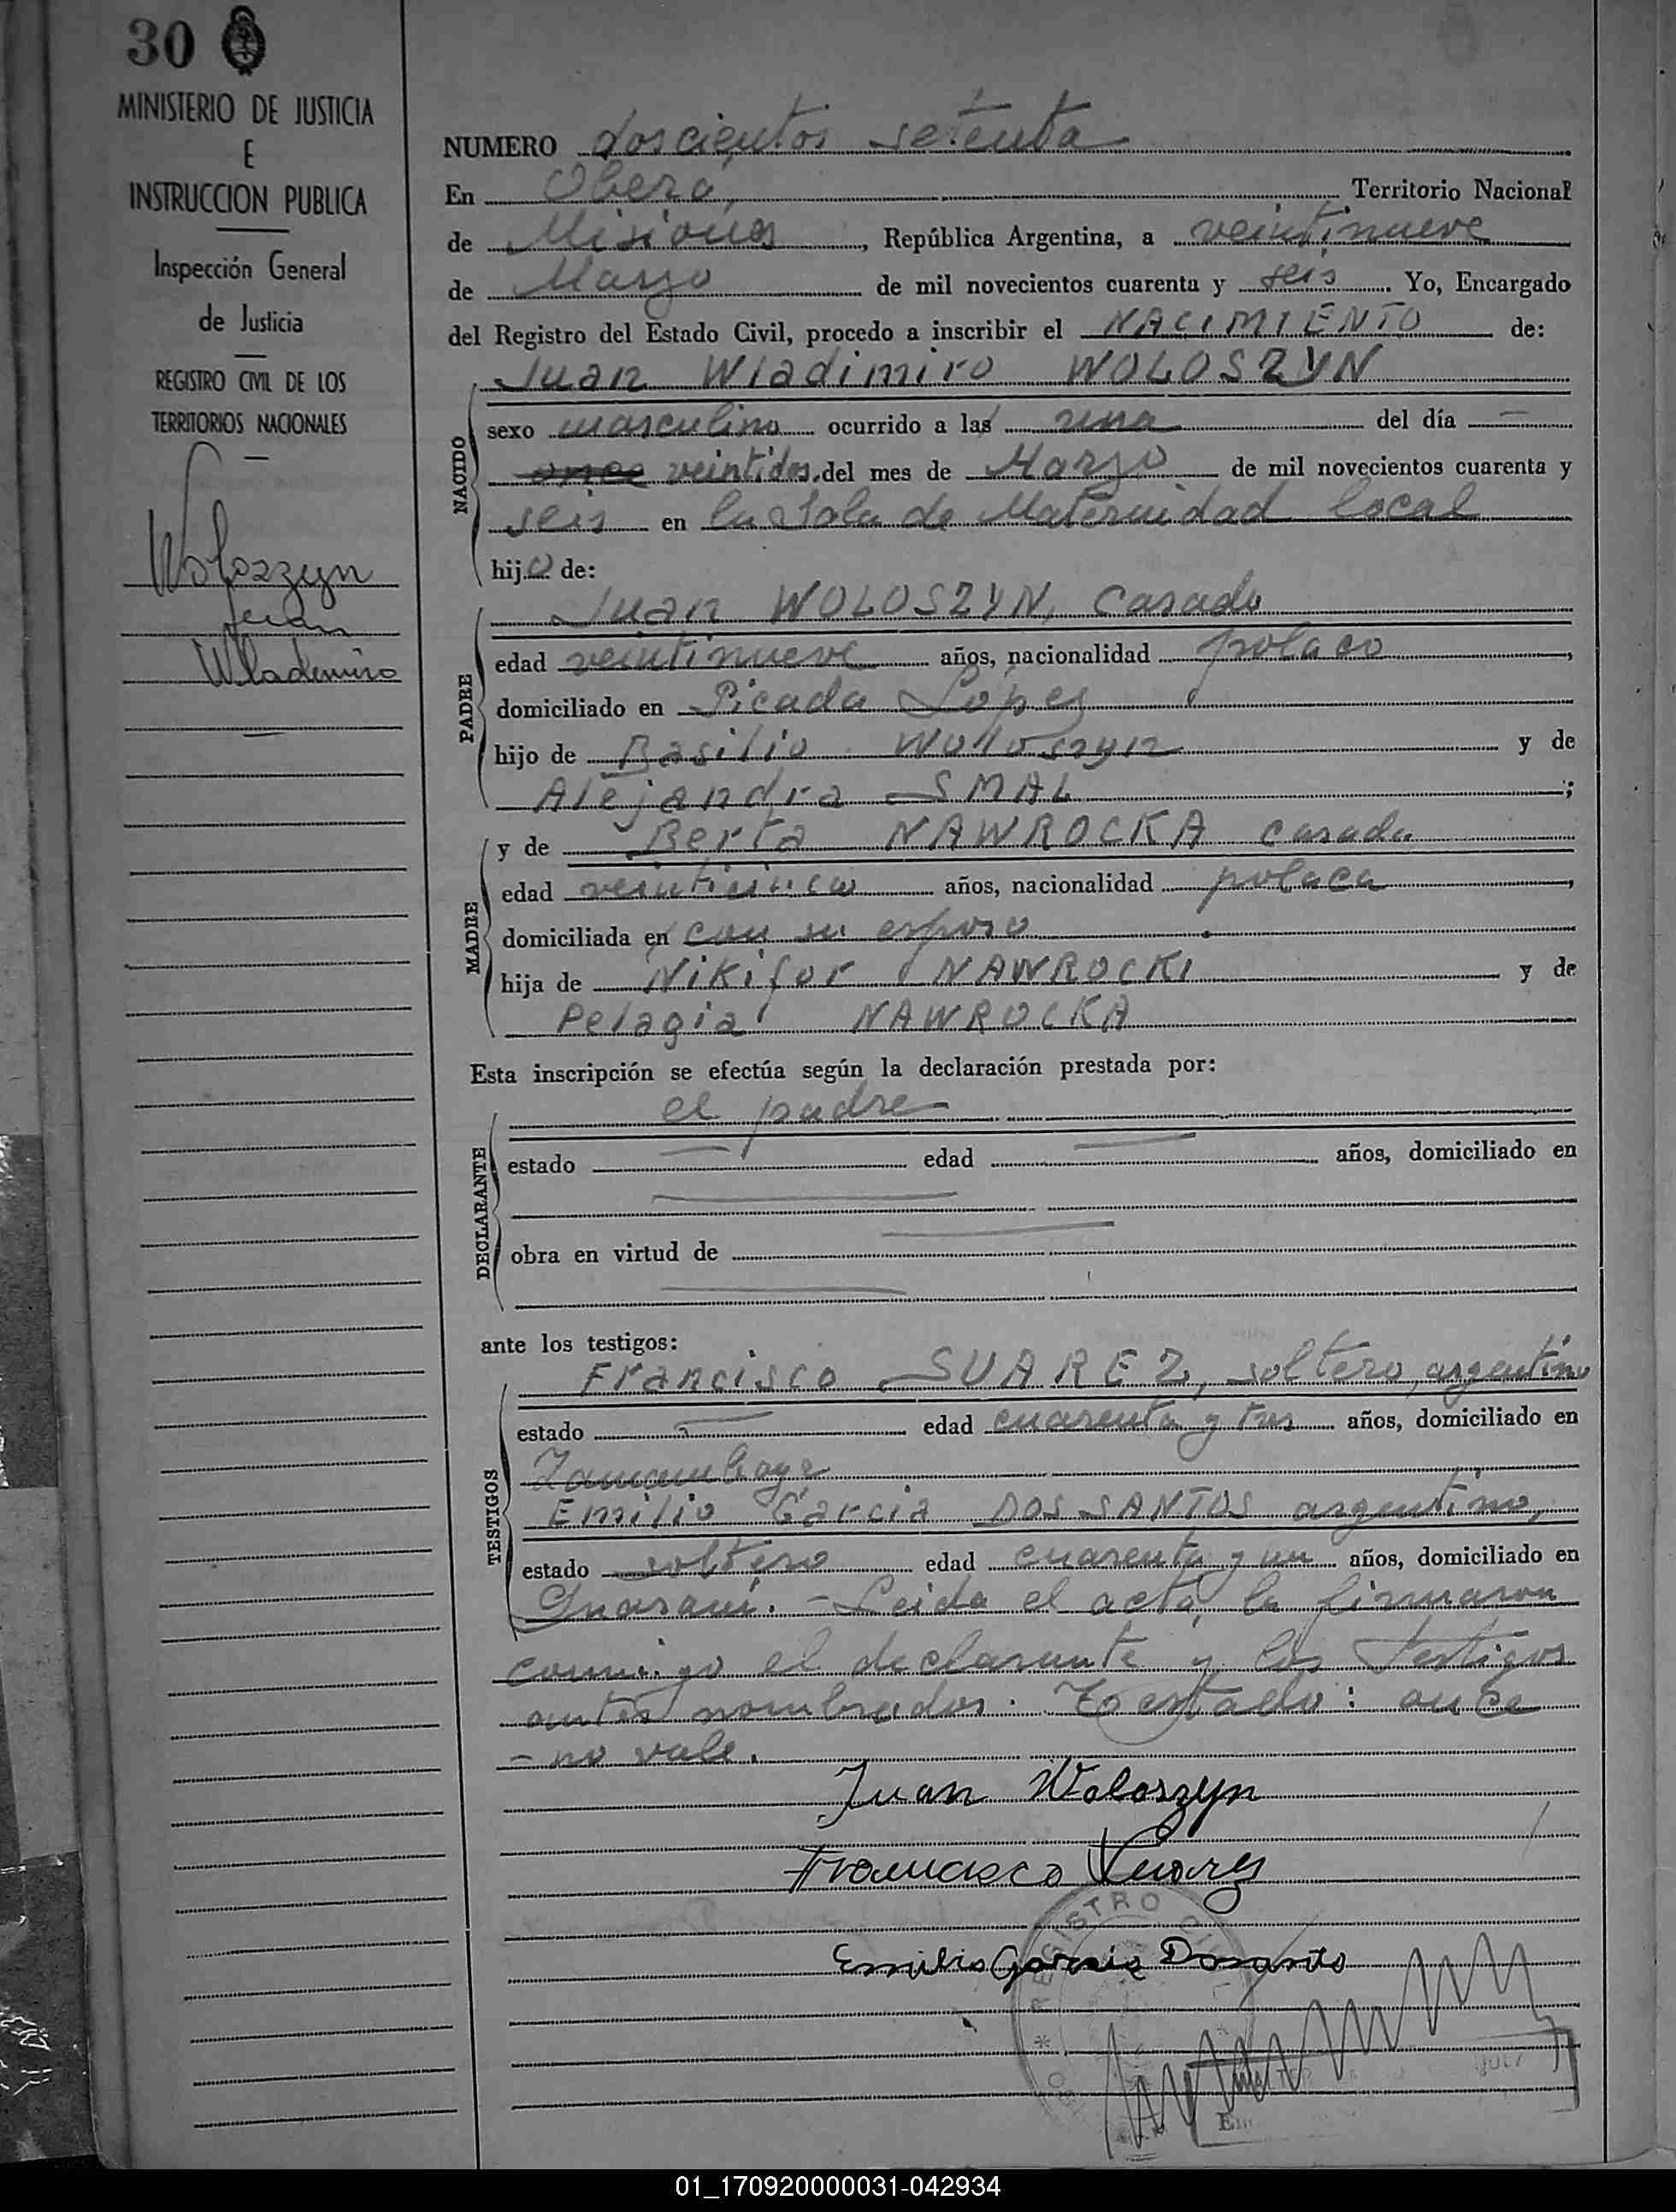 30
MINISTERIO DE JUSTICIA
E
INSTRUCCION PUBLICA
Inspección General
de Justicia
REGISTRO CIVIL DE LOS
TERRITORIOS NACIONALES
Woloszyn
Juan
Wlademiro
NUMERO doscientos setenta
En Oberá, Territorio Nacional
de Misiones, República Argentina, a veintinueve
de Marzo de mil novecientos cuarenta y seis. Yo, Encargado
del Registro del Estado Civil, procedo a inscribir el NACIMIENTO de:
Juan Wladimiro WOLOSZYN
NACIDO
sexo masculino ocurrido a las una del día —
once veintidos del mes de Marzo de mil novecientos cuarenta y
seis en la Sala de Maternidad local
hijo de:
PADRE
Juan WOLOSZYN, casado
edad veintinueve años, nacionalidad polaco,
domiciliado en Picada López
hijo de Basilio Woloszyn y de
Alejandra SMAL;
MADRE
y de Berta NAWROCKA casada
edad veinticinco años, nacionalidad polaca,
domiciliada en con su esposo
hija de Nikifor NAWROCKI y de
Pelagia NAWROCKA
Esta inscripción se efectúa según la declaración prestada por:
DECLARANTE
el padre
estado — edad — años, domiciliado en
obra en virtud de
ante los testigos:
TESTIGOS
Francisco SUAREZ, soltero, argentino
estado — edad cuarenta y tres años, domiciliado en
Emilio Garcia DOS SANTOS argentino,
estado soltero edad cuarenta y un años, domiciliado en
Guaraní. - Leida el acta, la firmaron
conmigo el declarante y los testigos
antes nombrados. Testado: once
- no vale.
Juan Woloszyn
Francisco Suarez
Emilio Garcia Dosanto
REGISTRO
01_170920000031-042934